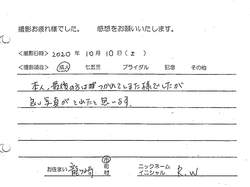 撮影お疲れ様でした。 感想をお願いいたします。
<撮影日時> 2020年 10月 10日 (土)
<撮影項目> 成人 七五三 ブライダル 記念 その他
本人、最後の方は疲つかれてしまた様でしたが
良い写真がとれたと思います
お住まい 龍ケ崎 市 町村 ニックネーム イニシャル K.W